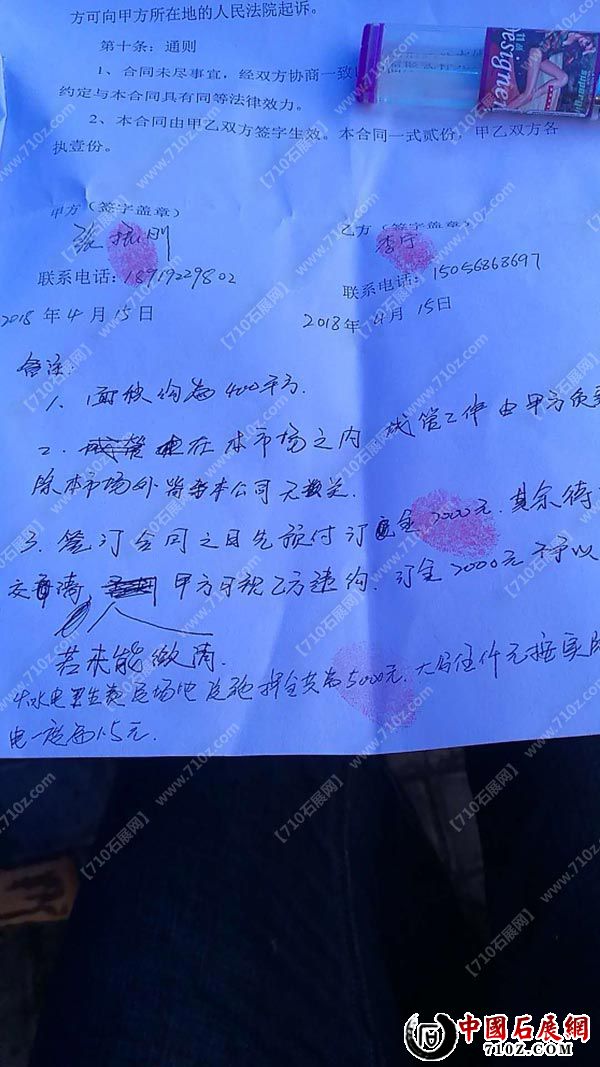 方可向甲方所在地的人民法院起诉。
第十条：通则
1、合同未尽事宜，经双方协商一致
约定与本合同具有同等法律效力。
2、本合同由甲乙双方签字生效。本合同一式贰份，甲乙双方各
执壹份。
Designer
甲方（签字盖章）
张振刚
联系电话：18919229802
2018年4月15日
乙方（签字盖章）
李宁
联系电话：15056868697
2018年4月15日
备注：
1、面积约为400平方.
2. 在本市场之内 城管工作由甲方负责
除本市场外 与本公司无关.
3. 签订合同之日先预付订金2000元.其余待
交清, 甲方可视乙方违约.订金2000元不予以
若未能缴清.
4.水电卫生费及场地设施押金共为5000元.大写伍仟元按实际
电一度为1.5元.
【710石展网】www.710z.com
中國石展網
710Z.COM